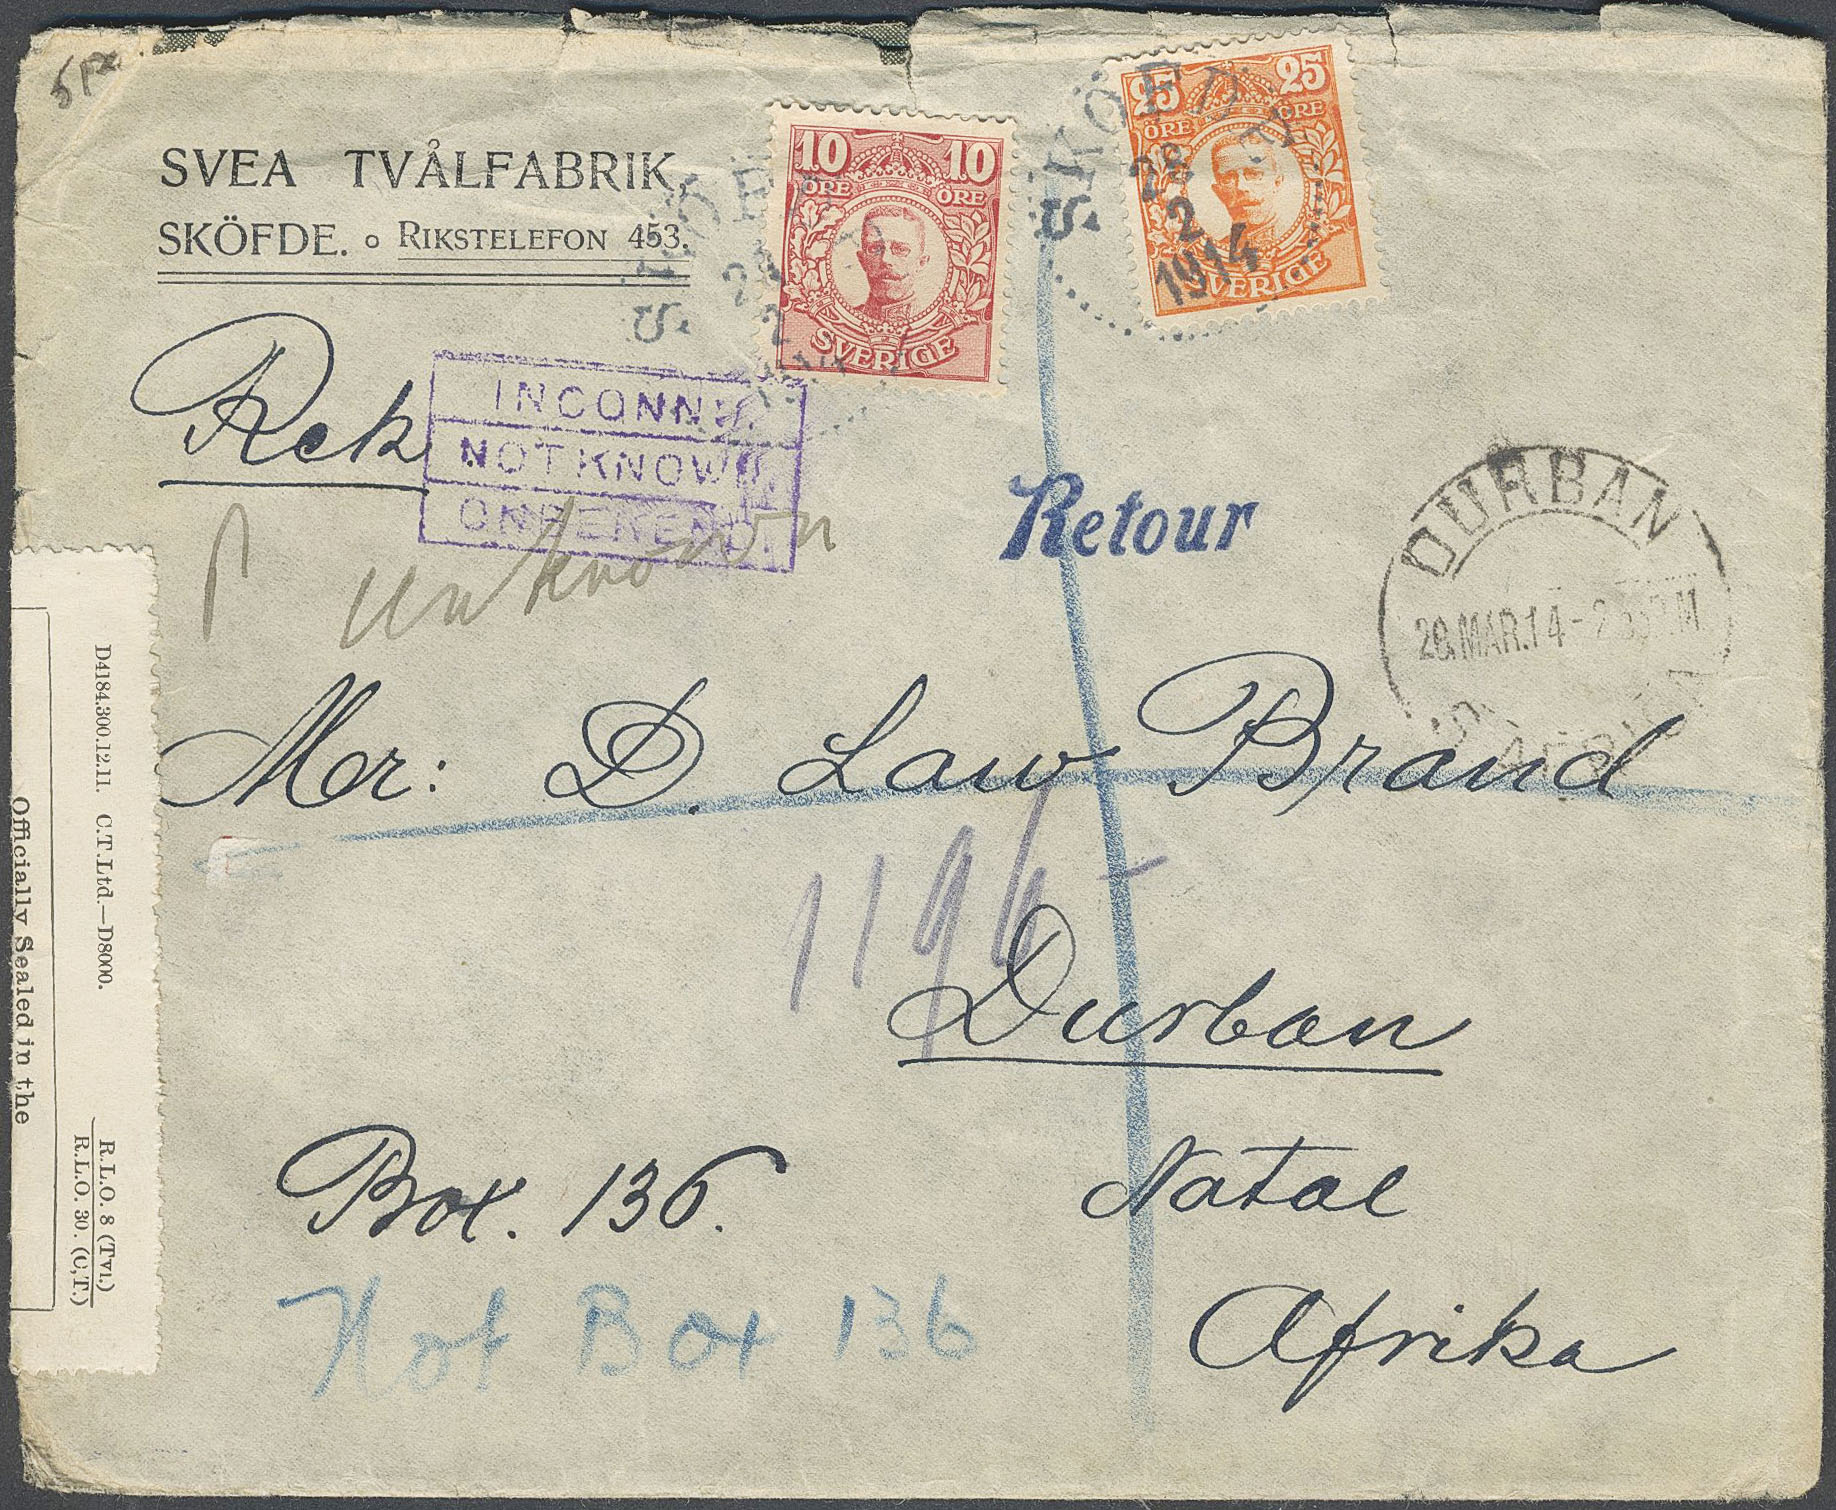 SVEA TVÅLFABRIK,
SKÖFDE. o RIKSTELEFON 453.
10 10
ÖRE ÖRE
SVERIGE
25 25
ÖRE ÖRE
SVERIGE
SKÖFDE
28
2
1914
Rek
INCONNU.
NOT KNOWN.
ONBEKEND.
unknown
Retour
DURBAN
MAR.14
Mr: D. Law Brand
1196
Durban
Box. 136.
Natal
Afrika
Not Box 136
D4184.300.12.11. C.T.Ltd.—D8000.
R.L.O. 8 (Tvl.)
R.L.O. 30. (C.T.)
Officially Sealed in the